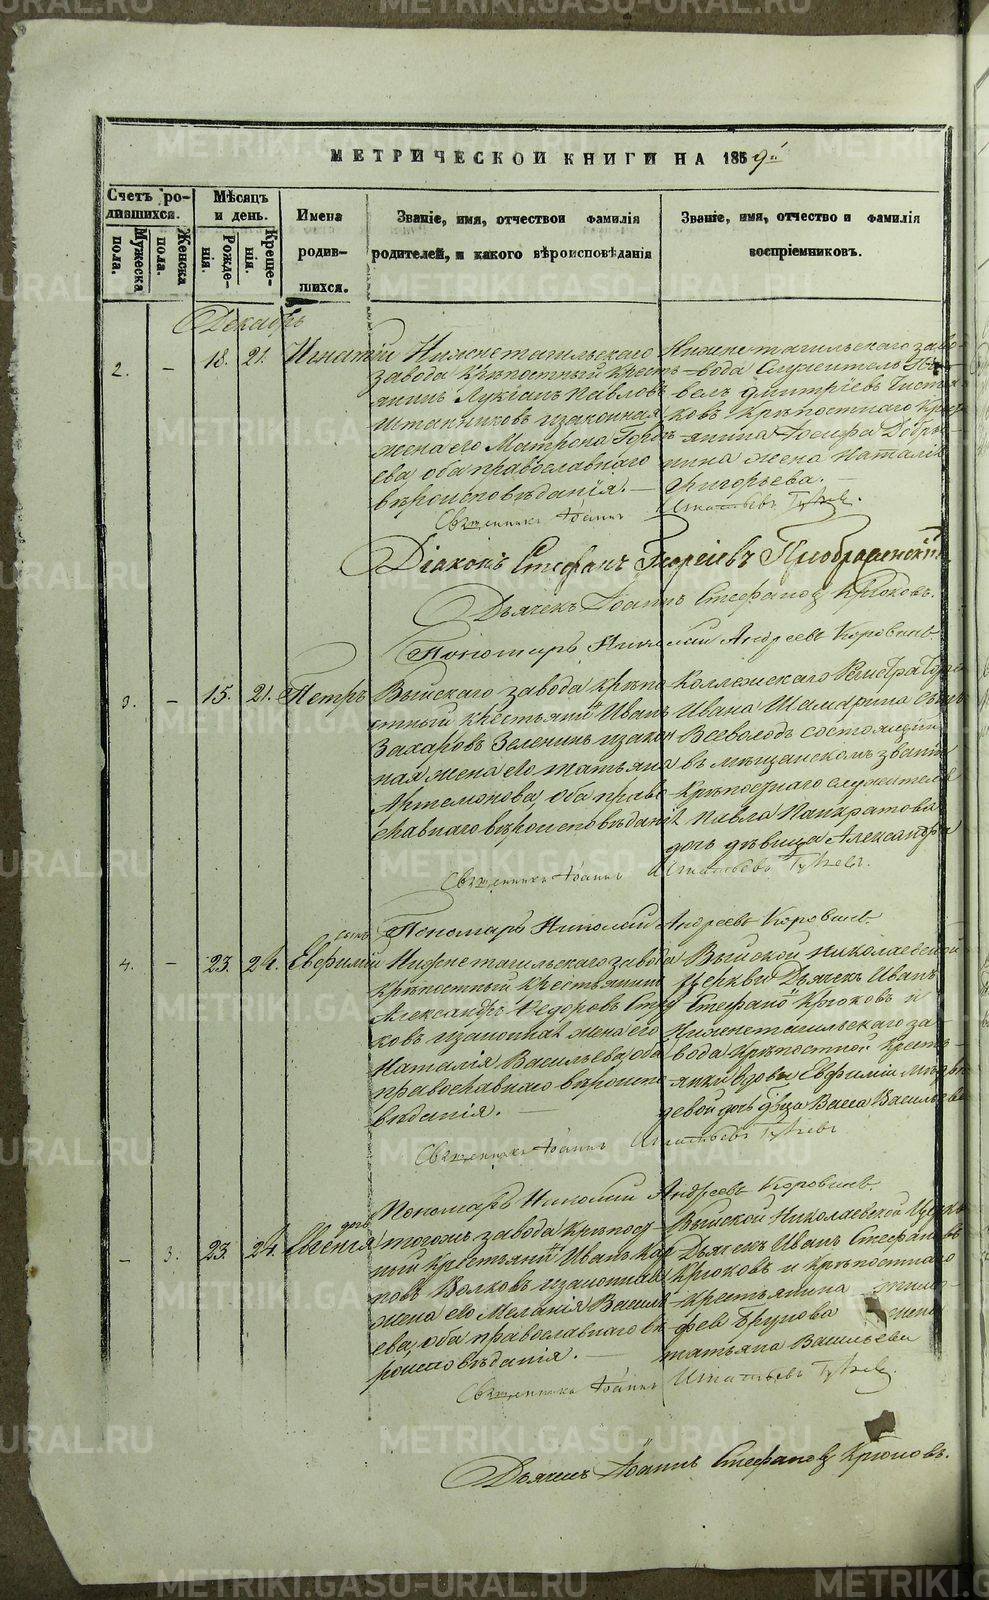 МЕТРИЧЕСКОЙ КНИГИ НА 1859й
Счетъ ро-
дившихся.
Мужеска
пола.
Женска
пола.
Мѣсяцъ
и день.
Рожде-
нія.
Креще-
нія.
Имена
родив-
шихся.
Званіе, имя, отчествои фамилія
родителей, и какого вѣроисповѣданія
Званіе, имя, отчество и фамилія
воспріемниковъ.
Декабрь
2. – 18. 21. Игнатій
Нижнетагильскаго
завода крѣпостный кресть-
янинъ Лукіанъ Павловъ
и законная
жена его Матрона
ева, оба православнаго
вѣроисповѣданія. –
Нижнетагильскаго заво-
вода Служитель
велъ Дмитріевъ
ковъ крѣпостнаго
янина Іосифа
жена Наталія
Григорьева. –
Священникъ Іоаннъ Игнатьевъ
Діаконъ Стефанъ Георгіевъ Преображенскій
Дьячекъ Іоаннъ Стефановъ Крюковъ.
Пономарь Николай Андреевъ Коровинъ
3. – 15. 21. Петръ
Выйскаго завода крѣпо
стный крестьянинъ Иванъ
Захаровъ Зеленинъ и закон
ная жена его Татьяна
Артемонова, оба право-
славнаго вѣроисповѣданія
Коллежскаго Регистратора
Ивана Шамарина сынъ
Всеволодъ состоящій
въ мѣщанскомъ званіи
Крѣпостнаго служителя
Павла Панкратова
дочь дѣвица Александра
Священникъ Іоаннъ Игнатьевъ
Пономарь Николай Андреевъ Коровинъ.
4. – 23. 24. сынъ
Евфимій
Нижнетагильскаго завода
крѣпостный крестьянинъ
Александръ Ѳедоровъ
ковъ и законная жена его
Наталія Васильева, оба
православнаго вѣроиспо
вѣданія. –
Выйской Николаевской
Церкви Дьячекъ Иванъ
Стефановъ Крюковъ и
Нижнетагильскаго за
вода крѣпостной кресть-
янки вдовы Евфиміи
девой дочь Васса Васильева
Священникъ Іоаннъ Игнатьевъ
Пономарь Николай Андреевъ Коровинъ.
– 3. 23. 24. дочь
Евгенія
тогожъ завода крѣпост-
ный крестьянинъ Иванъ Кар
повъ Волковъ и законная
жена его Меланія Василь
ева, оба православнаго вѣ
роисповѣданія. –
Выйской Николаевской Церкви
Дьячекъ Иванъ Стефановъ
Крюковъ и крѣпостнаго
крестьянина
жена
Татьяна Васильева
Священникъ Іоаннъ Игнатьевъ
Дьячекъ Іоаннъ Стефановъ Крюковъ.
METRIKI.GASO-URAL.RU